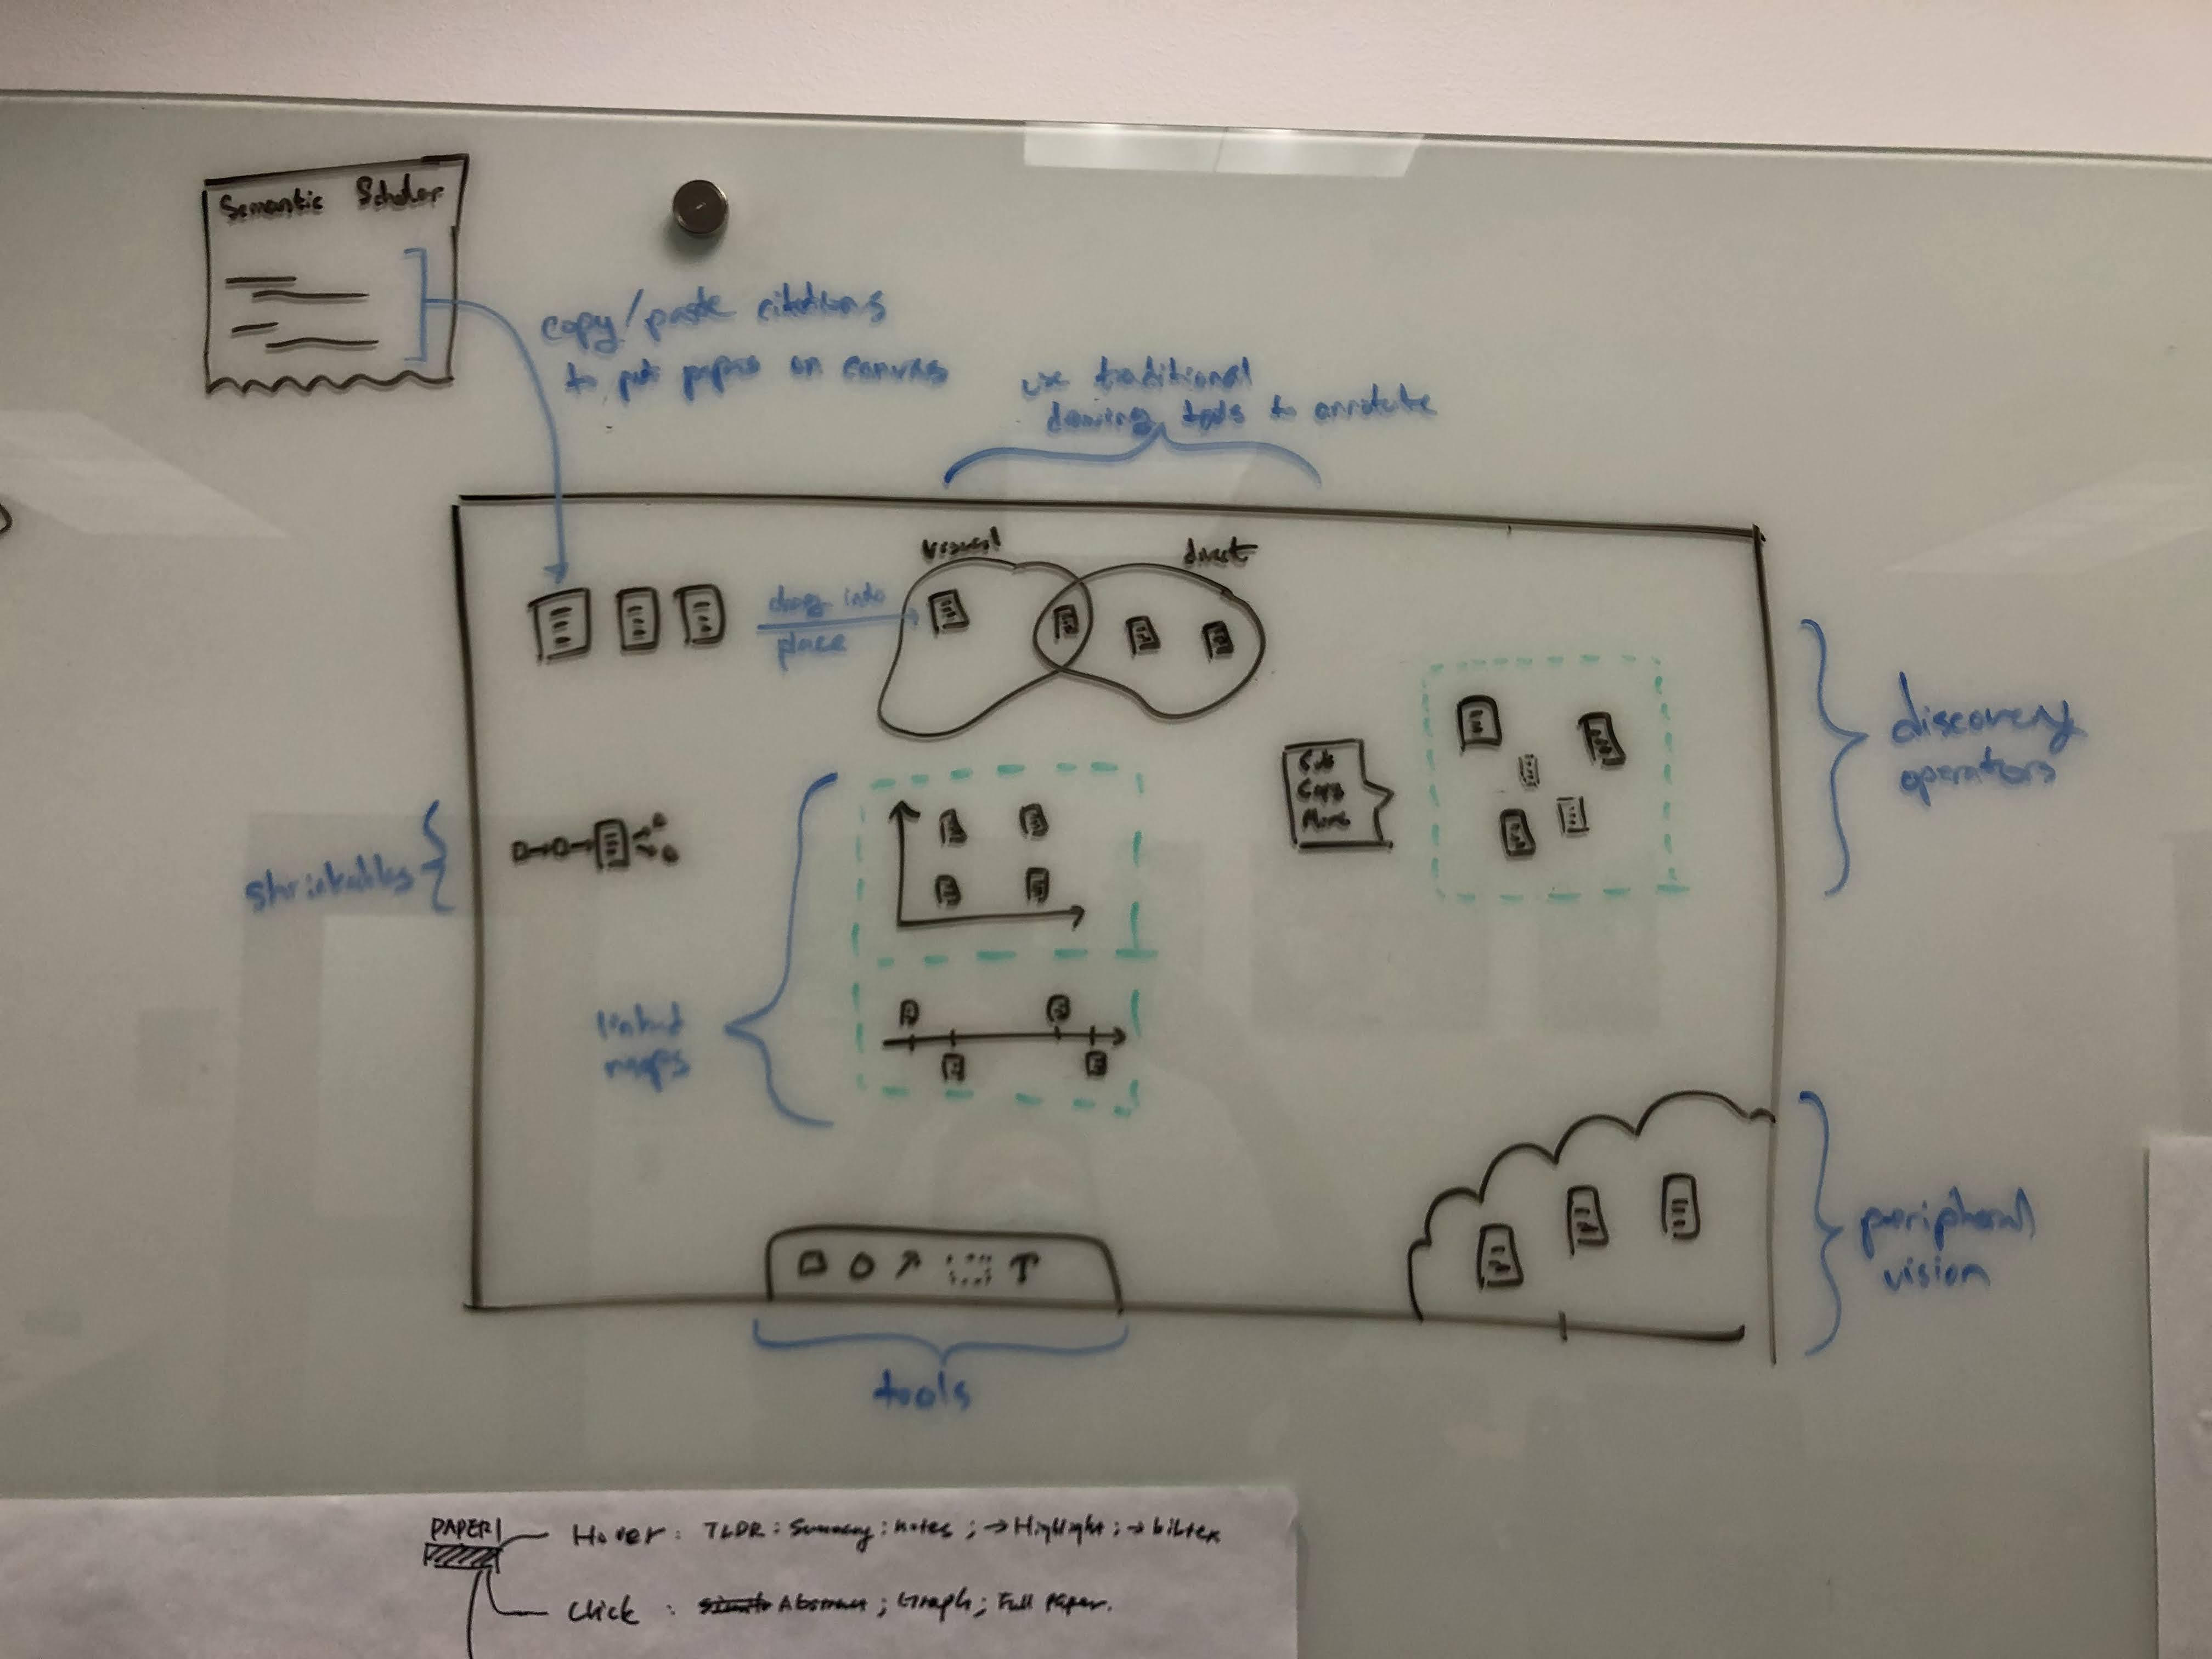 Semantic Scholar
copy/paste citations
to put papers on canvas
use traditional
drawing tools to annotate
visual
direct
drag into
place
discovery
operators
Cut
Copy
More
shrinkables
linked
maps
peripheral
vision
T
tools
PAPER1
Hover: TLDR: Summary: notes; → Highlight; → bibtex
Click: Abstract; Graph; Full Paper.